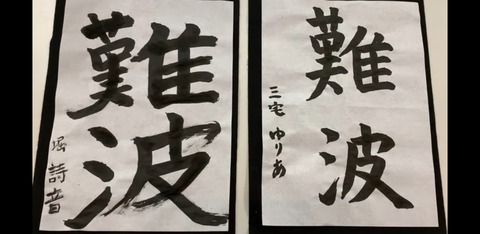 難波
堀 詩音
難波
三宅 ゆりあ